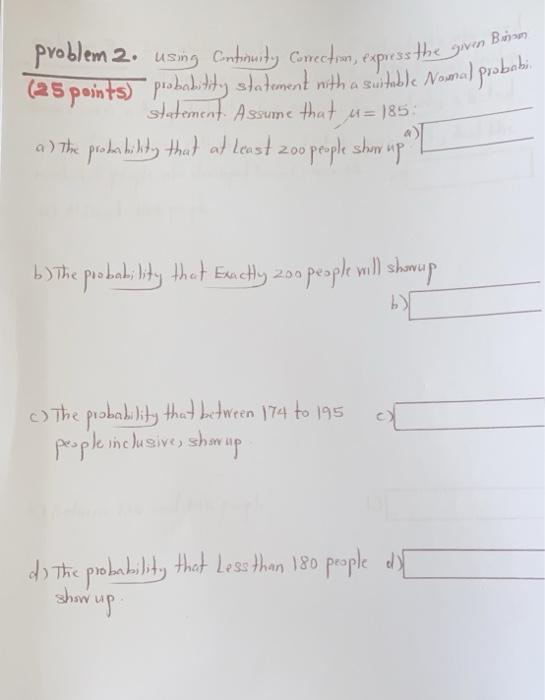 Problem 2. using Continuity Correction, express the given Binom
(25 points) probability statement with a suitable Normal probabi.
statement. Assume that μ = 185:
a) The probability that at least 200 people show up a)
b) The probability that Exactly 200 people will showup
b)
c) The probability that between 174 to 195 c)
people inclusive, show up
d) The probability that Less than 180 people d)
show up.